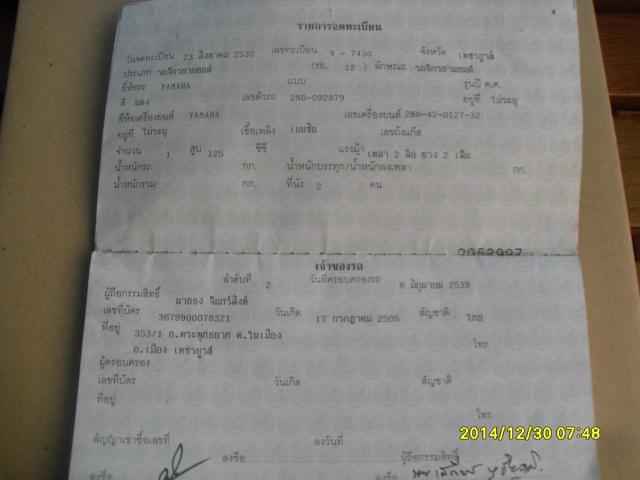 รายการจดทะเบียน
วันจดทะเบียน 23 สิงหาคม 2532 เลขทะเบียน จ - 7430 จังหวัด เพชรบูรณ์
ประเภท รถจักรยานยนต์ (รย. 12 ) ลักษณะ รถจักรยานยนต์
ยี่ห้อรถ YAMAHA แบบ รุ่นปี ค.ศ.
สี แดง เลขตัวรถ 2N0-092879 อยู่ที่ ไม่ระบุ
ยี่ห้อเครื่องยนต์ YAMAHA เลขเครื่องยนต์ 2N0-42-0127-32
อยู่ที่ ไม่ระบุ เชื้อเพลิง เบนซิน เลขถังแก๊ส
จำนวน 1 สูบ 125 ซีซี แรงม้า เพลา 2 ล้อ ยาง 2 เส้น
น้ำหนักรถ กก. น้ำหนักบรรทุก/น้ำหนักลงเพลา กก.
น้ำหนักรวม กก. ที่นั่ง 2 คน
เจ้าของรถ
ลำดับที่ 2 วันที่ครอบครองรถ 6 มิถุนายน 2539
ผู้ถือกรรมสิทธิ์ นายธง จันทร์สิงห์
เลขที่บัตร 3679900078321 วันเกิด 17 กรกฎาคม 2505 สัญชาติ ไทย
ที่อยู่ 353/1 ถ.พระพุทธบาท ต.ในเมือง
อ.เมือง เพชรบูรณ์ โทร.
ผู้ครอบครอง
เลขที่บัตร วันเกิด สัญชาติ
ที่อยู่
โทร.
สัญญาเช่าซื้อเลขที่ ลงวันที่
ลงชื่อ ผู้ถือกรรมสิทธิ์
ลงชื่อ
2014/12/30 07:48